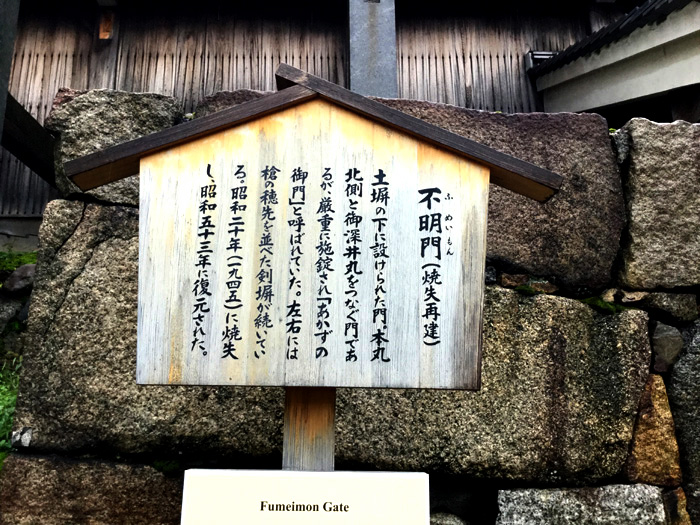 不明門(焼失再建)
ふめいもん
土塀の下に設けられた門。本丸
北側と御深井丸をつなぐ門であ
るが、厳重に施錠され「あかずの
御門」と呼ばれていた。左右には
槍の穂先を並べた剣塀が続いてい
る。昭和二十年(一九四五)に焼失
し、昭和五十三年に復元された。
Fumeimon Gate